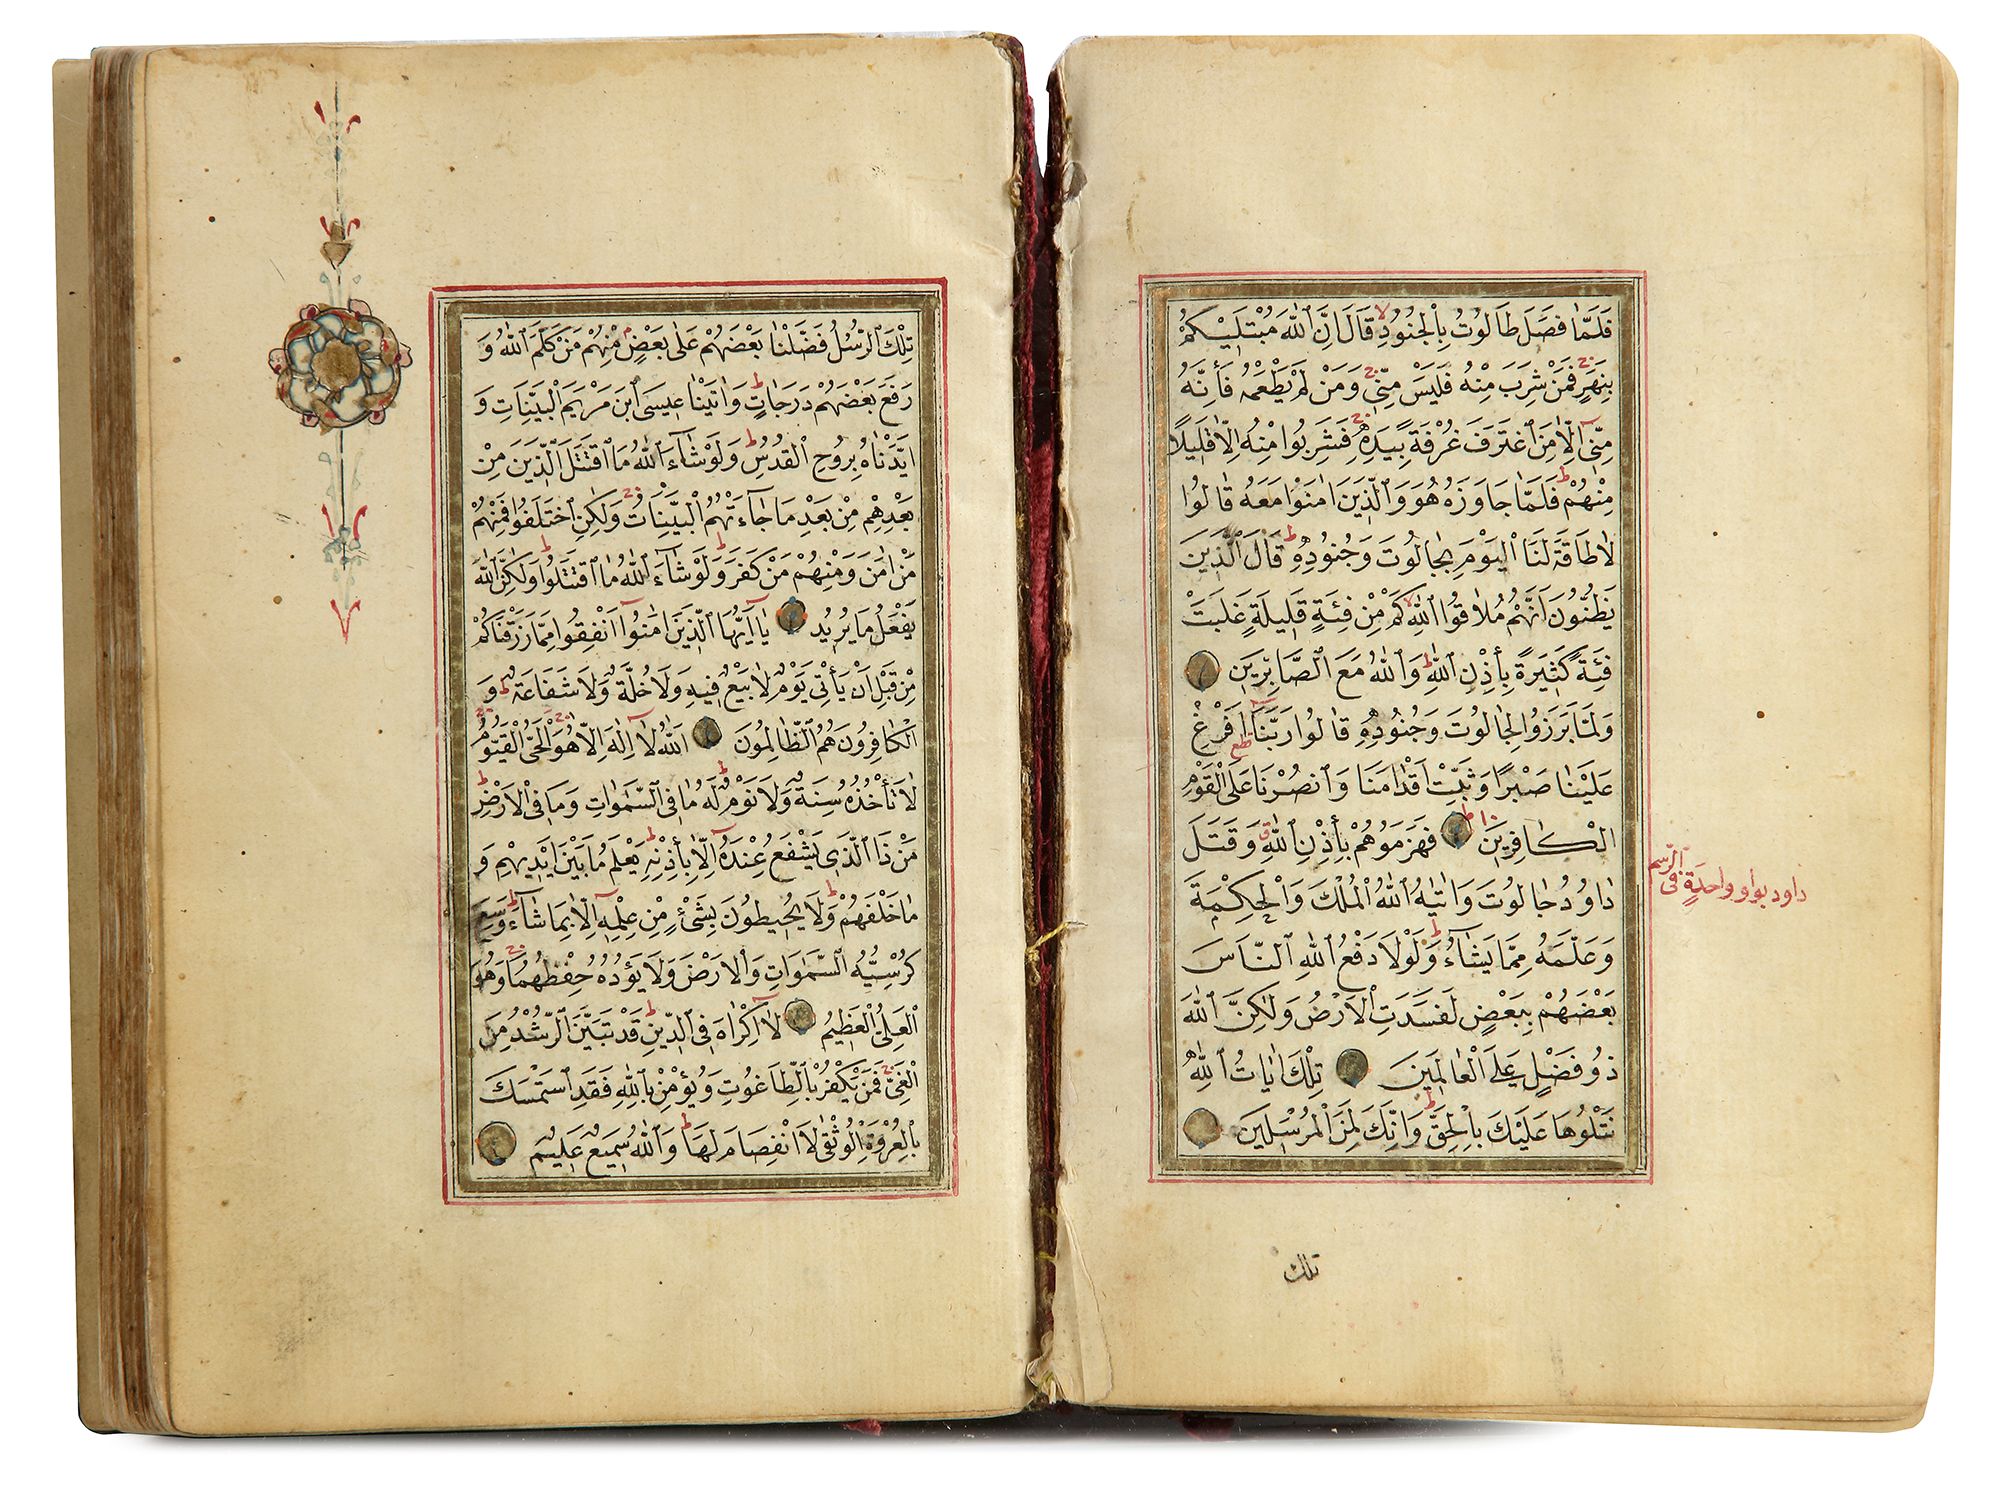 فَلَمَّا فَصَلَ طَالُوتُ بِالْجُنُودِ قَالَ اِنَّ اللّٰهَ مُبْتَلِيكُمْ
بِنَهَرٍ فَمَنْ شَرِبَ مِنْهُ فَلَيْسَ مِنّٖى وَمَنْ لَمْ يَطْعَمْهُ فَاِنَّهُ
مِنّٖى اِلَّا مَنِ اغْتَرَفَ غُرْفَةً بِيَدِهٖ فَشَرِبُوا مِنْهُ اِلَّا قَلٖيلًا
مِنْهُمْ فَلَمَّا جَاوَزَهُ هُوَ وَالَّذٖينَ اٰمَنُوا مَعَهُ قَالُوا
لَا طَاقَةَ لَنَا الْيَوْمَ بِجَالُوتَ وَجُنُودِهٖ قَالَ الَّذٖينَ
يَظُنُّونَ اَنَّهُمْ مُلَاقُوا اللّٰهِ كَمْ مِنْ فِئَةٍ قَلٖيلَةٍ غَلَبَتْ
فِئَةً كَثٖيرَةً بِاِذْنِ اللّٰهِ وَاللّٰهُ مَعَ الصَّابِرٖينَ
وَلَمَّا بَرَزُوا لِجَالُوتَ وَجُنُودِهٖ قَالُوا رَبَّنَا اَفْرِغْ
عَلَيْنَا صَبْرًا وَثَبِّتْ اَقْدَامَنَا وَانْصُرْنَا عَلَى الْقَوْمِ
الْكَافِرٖينَ فَهَزَمُوهُمْ بِاِذْنِ اللّٰهِ وَقَتَلَ
دَاوُدُ جَالُوتَ وَاٰتٰيهُ اللّٰهُ الْمُلْكَ وَالْحِكْمَةَ
وَعَلَّمَهُ مِمَّا يَشَاءُ وَلَوْلَا دَفْعُ اللّٰهِ النَّاسَ
بَعْضَهُمْ بِبَعْضٍ لَفَسَدَتِ الْاَرْضُ وَلٰكِنَّ اللّٰهَ
ذُو فَضْلٍ عَلَى الْعَالَمٖينَ تِلْكَ اٰيَاتُ اللّٰهِ
نَتْلُوهَا عَلَيْكَ بِالْحَقِّ وَاِنَّكَ لَمِنَ الْمُرْسَلٖينَ
داود بواو واحدة فى الرسم
تلك
تِلْكَ الرُّسُلُ فَضَّلْنَا بَعْضَهُمْ عَلٰى بَعْضٍ مِنْهُمْ مَنْ كَلَّمَ اللّٰهُ وَ
رَفَعَ بَعْضَهُمْ دَرَجَاتٍ وَاٰتَيْنَا عٖيسَى ابْنَ مَرْيَمَ الْبَيِّنَاتِ وَ
اَيَّدْنَاهُ بِرُوحِ الْقُدُسِ وَلَوْ شَاءَ اللّٰهُ مَا اقْتَتَلَ الَّذٖينَ مِنْ
بَعْدِهِمْ مِنْ بَعْدِ مَا جَاءَتْهُمُ الْبَيِّنَاتُ وَلٰكِنِ اخْتَلَفُوا فَمِنْهُمْ
مَنْ اٰمَنَ وَمِنْهُمْ مَنْ كَفَرَ وَلَوْ شَاءَ اللّٰهُ مَا اقْتَتَلُوا وَلٰكِنَّ اللّٰهَ
يَفْعَلُ مَا يُرٖيدُ يَا اَيُّهَا الَّذٖينَ اٰمَنُوا اَنْفِقُوا مِمَّا رَزَقْنَاكُمْ
مِنْ قَبْلِ اَنْ يَأْتِيَ يَوْمٌ لَا بَيْعٌ فٖيهِ وَلَا خُلَّةٌ وَلَا شَفَاعَةٌ وَ
الْكَافِرُونَ هُمُ الظَّالِمُونَ اَللّٰهُ لَا اِلٰهَ اِلَّا هُوَ الْحَيُّ الْقَيُّومُ
لَا تَأْخُذُهُ سِنَةٌ وَلَا نَوْمٌ لَهُ مَا فِى السَّمٰوَاتِ وَمَا فِى الْاَرْضِ
مَنْ ذَا الَّذٖى يَشْفَعُ عِنْدَهُ اِلَّا بِاِذْنِهٖ يَعْلَمُ مَا بَيْنَ اَيْدٖيهِمْ وَ
مَا خَلْفَهُمْ وَلَا يُحٖيطُونَ بِشَيْءٍ مِنْ عِلْمِهٖ اِلَّا بِمَا شَاءَ وَسِعَ
كُرْسِيُّهُ السَّمٰوَاتِ وَالْاَرْضَ وَلَا يَؤُدُهُ حِفْظُهُمَا وَهُوَ
الْعَلِيُّ الْعَظٖيمُ لَا اِكْرَاهَ فِى الدّٖينِ قَدْ تَبَيَّنَ الرُّشْدُ مِنَ
الْغَيِّ فَمَنْ يَكْفُرْ بِالطَّاغُوتِ وَيُؤْمِنْ بِاللّٰهِ فَقَدِ اسْتَمْسَكَ
بِالْعُرْوَةِ الْوُثْقٰى لَا انْفِصَامَ لَهَا وَاللّٰهُ سَمٖيعٌ عَلٖيمٌ